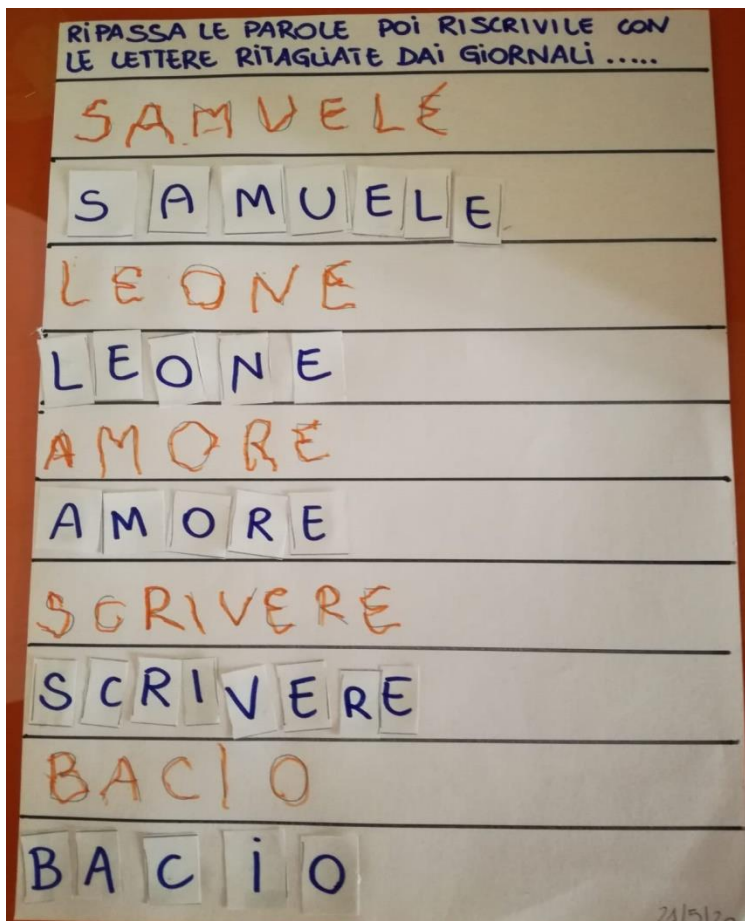 RIPASSA LE PAROLE POI RISCRIVILE CON
LE LETTERE RITAGLIATE DAI GIORNALI .....
SAMUELE
SAMUELE
LEONE
LEONE
AMORE
AMORE
SCRIVERE
SCRIVERE
BACIO
BACIO